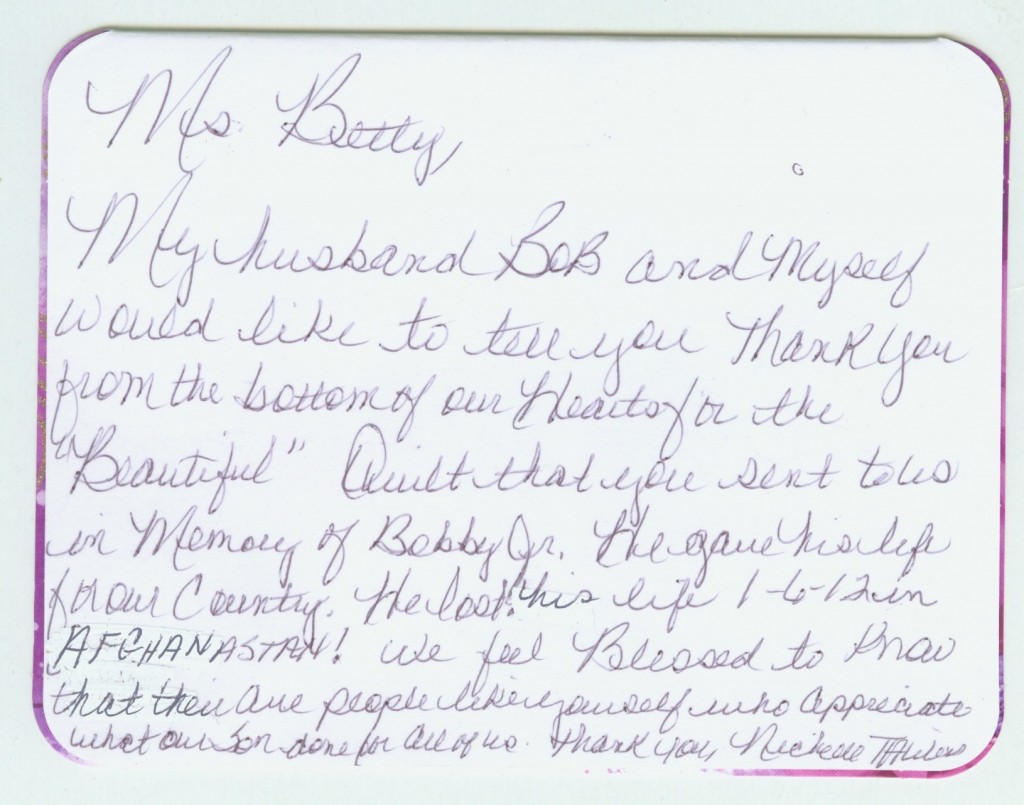 Ms. Betty,
My husband BOB and Myself
would like to tell you Thank You
from the bottom of our Hearts for the
"Beautiful" Quilt that you sent to us
in Memory of Bobby Jr. He gave his life
for our Country. He lost his life 1-6-12 in
AFGHANASTAN! We feel Blessed to Know
that there are people like yourself who appreciate
what our Son done for all of us. Thank You,